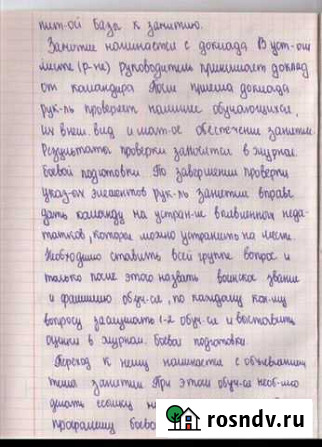 пит-ой база к занятию.
Занятие начинается с доклада В уст-ом
месте (р-не) Руководитель принимает доклад
от командира После приема доклада
рук-ль проверяет наличие обучающихся,
их внеш. вид и мат-ое обеспечение занятия.
Результаты проверки заносятся в журнал
боевой подготовки По завершении проверки
указ-ых элементов рук-ль занятия вправе
дать команду на устран-ие выявленной недо-
татков, которые можно устранить на месте.
Необходимо ставить всей группе вопрос и
только после этого назвать воинское звание
и фамилию обуч-ся, по каждому
вопросу заслушать 1-2 обуч-ся и выставить
оценки в журнал боевой подготовки.
Переход к нему начинается с объявления
темы занятия При этом обуч-ся
делать ссылку
программу
rosndv.ru